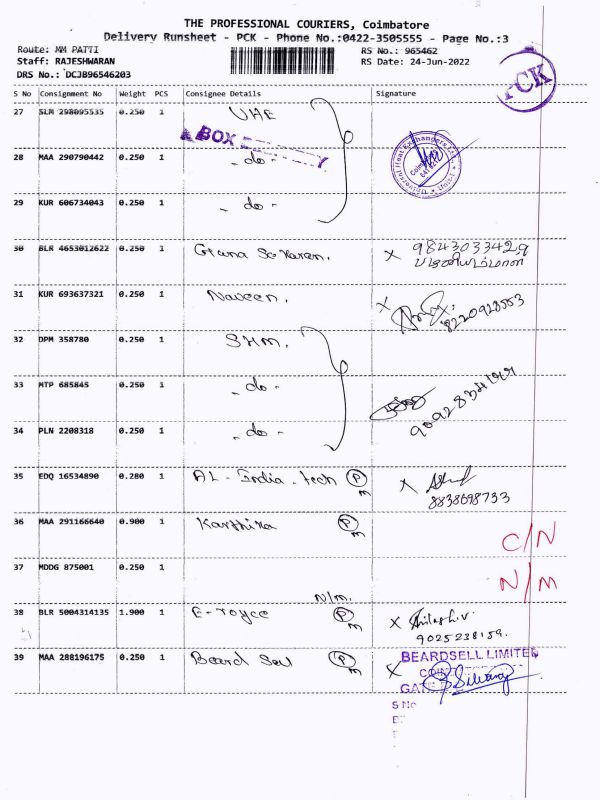 THE PROFESSIONAL COURIERS, Coimbatore
Delivery Runsheet - PCK - Phone No.:0422-3505555 - Page No.:3
Route: MM PATTI RS No.: 965462
Staff: RAJESHWARAN RS Date: 24-Jun-2022
DRS No.: DCJB96546203
PCK
S No Consignment No Weight PCS Consignee Details Signature
27 SLM 298095535 0.250 1 UHE
BOX
28 MAA 290790442 0.250 1 - do -
29 KUR 606734043 0.250 1 - do -
30 BLR 4653012622 0.250 1 x 9843033429
31 KUR 693637321 0.250 1 Naveen. x 8220928553
32 DPM 358780 0.250 1 SHM.
33 MTP 685845 0.250 1 - do -
34 PLN 2208318 0.250 1 - do -
35 EDQ 16534890 0.280 1 AL - India . tech P m x
8838698733
36 MAA 291166640 0.900 1 Karthika P m C/N
37 MDDG 875001 0.250 1 N/M
N/m.
38 BLR 5004314135 1.900 1 E-royce P m x
9025238159.
39 MAA 288196175 0.250 1 Beard Sell P m x
BEARDSELL LIMITED
S No